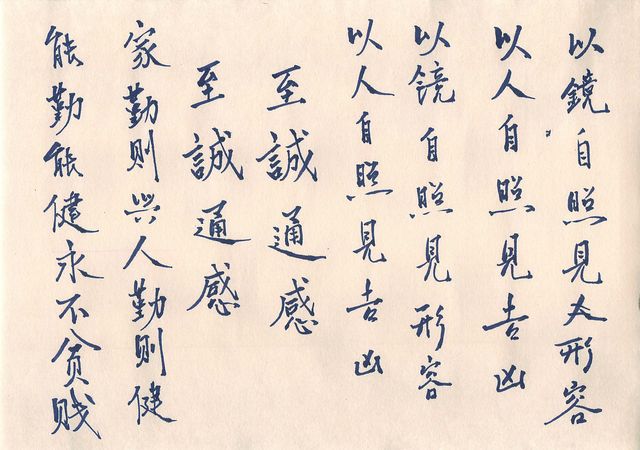 以鏡自照見大形容
以人自照見吉凶
以鏡自照見形容
以人自照見吉凶
至誠通感
至誠通感
家勤則興人勤則健
能勤能健永不貧賤